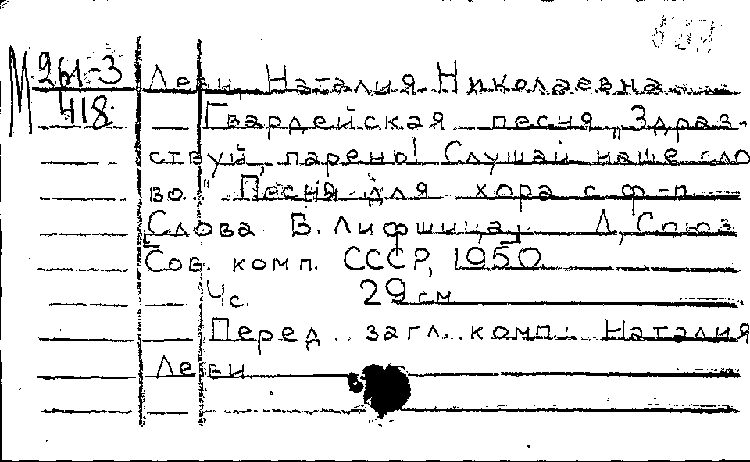 М 261-3
418
Леви, Наталия Николаевна
Гвардейская песня „Здрав-
ствуй, парень! Слушай наше сло-
во." Песня для хора с ф-п.
Слова В. Лифшица. Л., Союз
Сов. комп. СССР, 1950
4 с. 29 см
Перед загл. комп.: Наталия
Леви